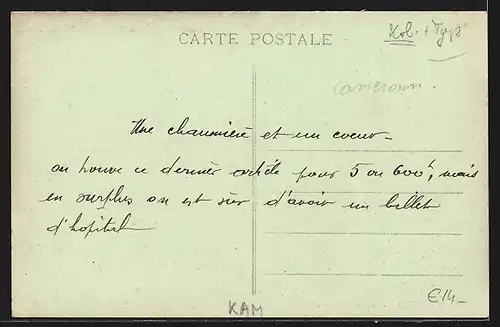 CARTE POSTALE
Kol. + Typ
Cameroun.
Une chaumière et un coeur -
on trouve ce dernier cotée pour 5 ou 600f, mais
en surplus on est sûr d'avoir un billet
d'hôpital
€14-
KAM